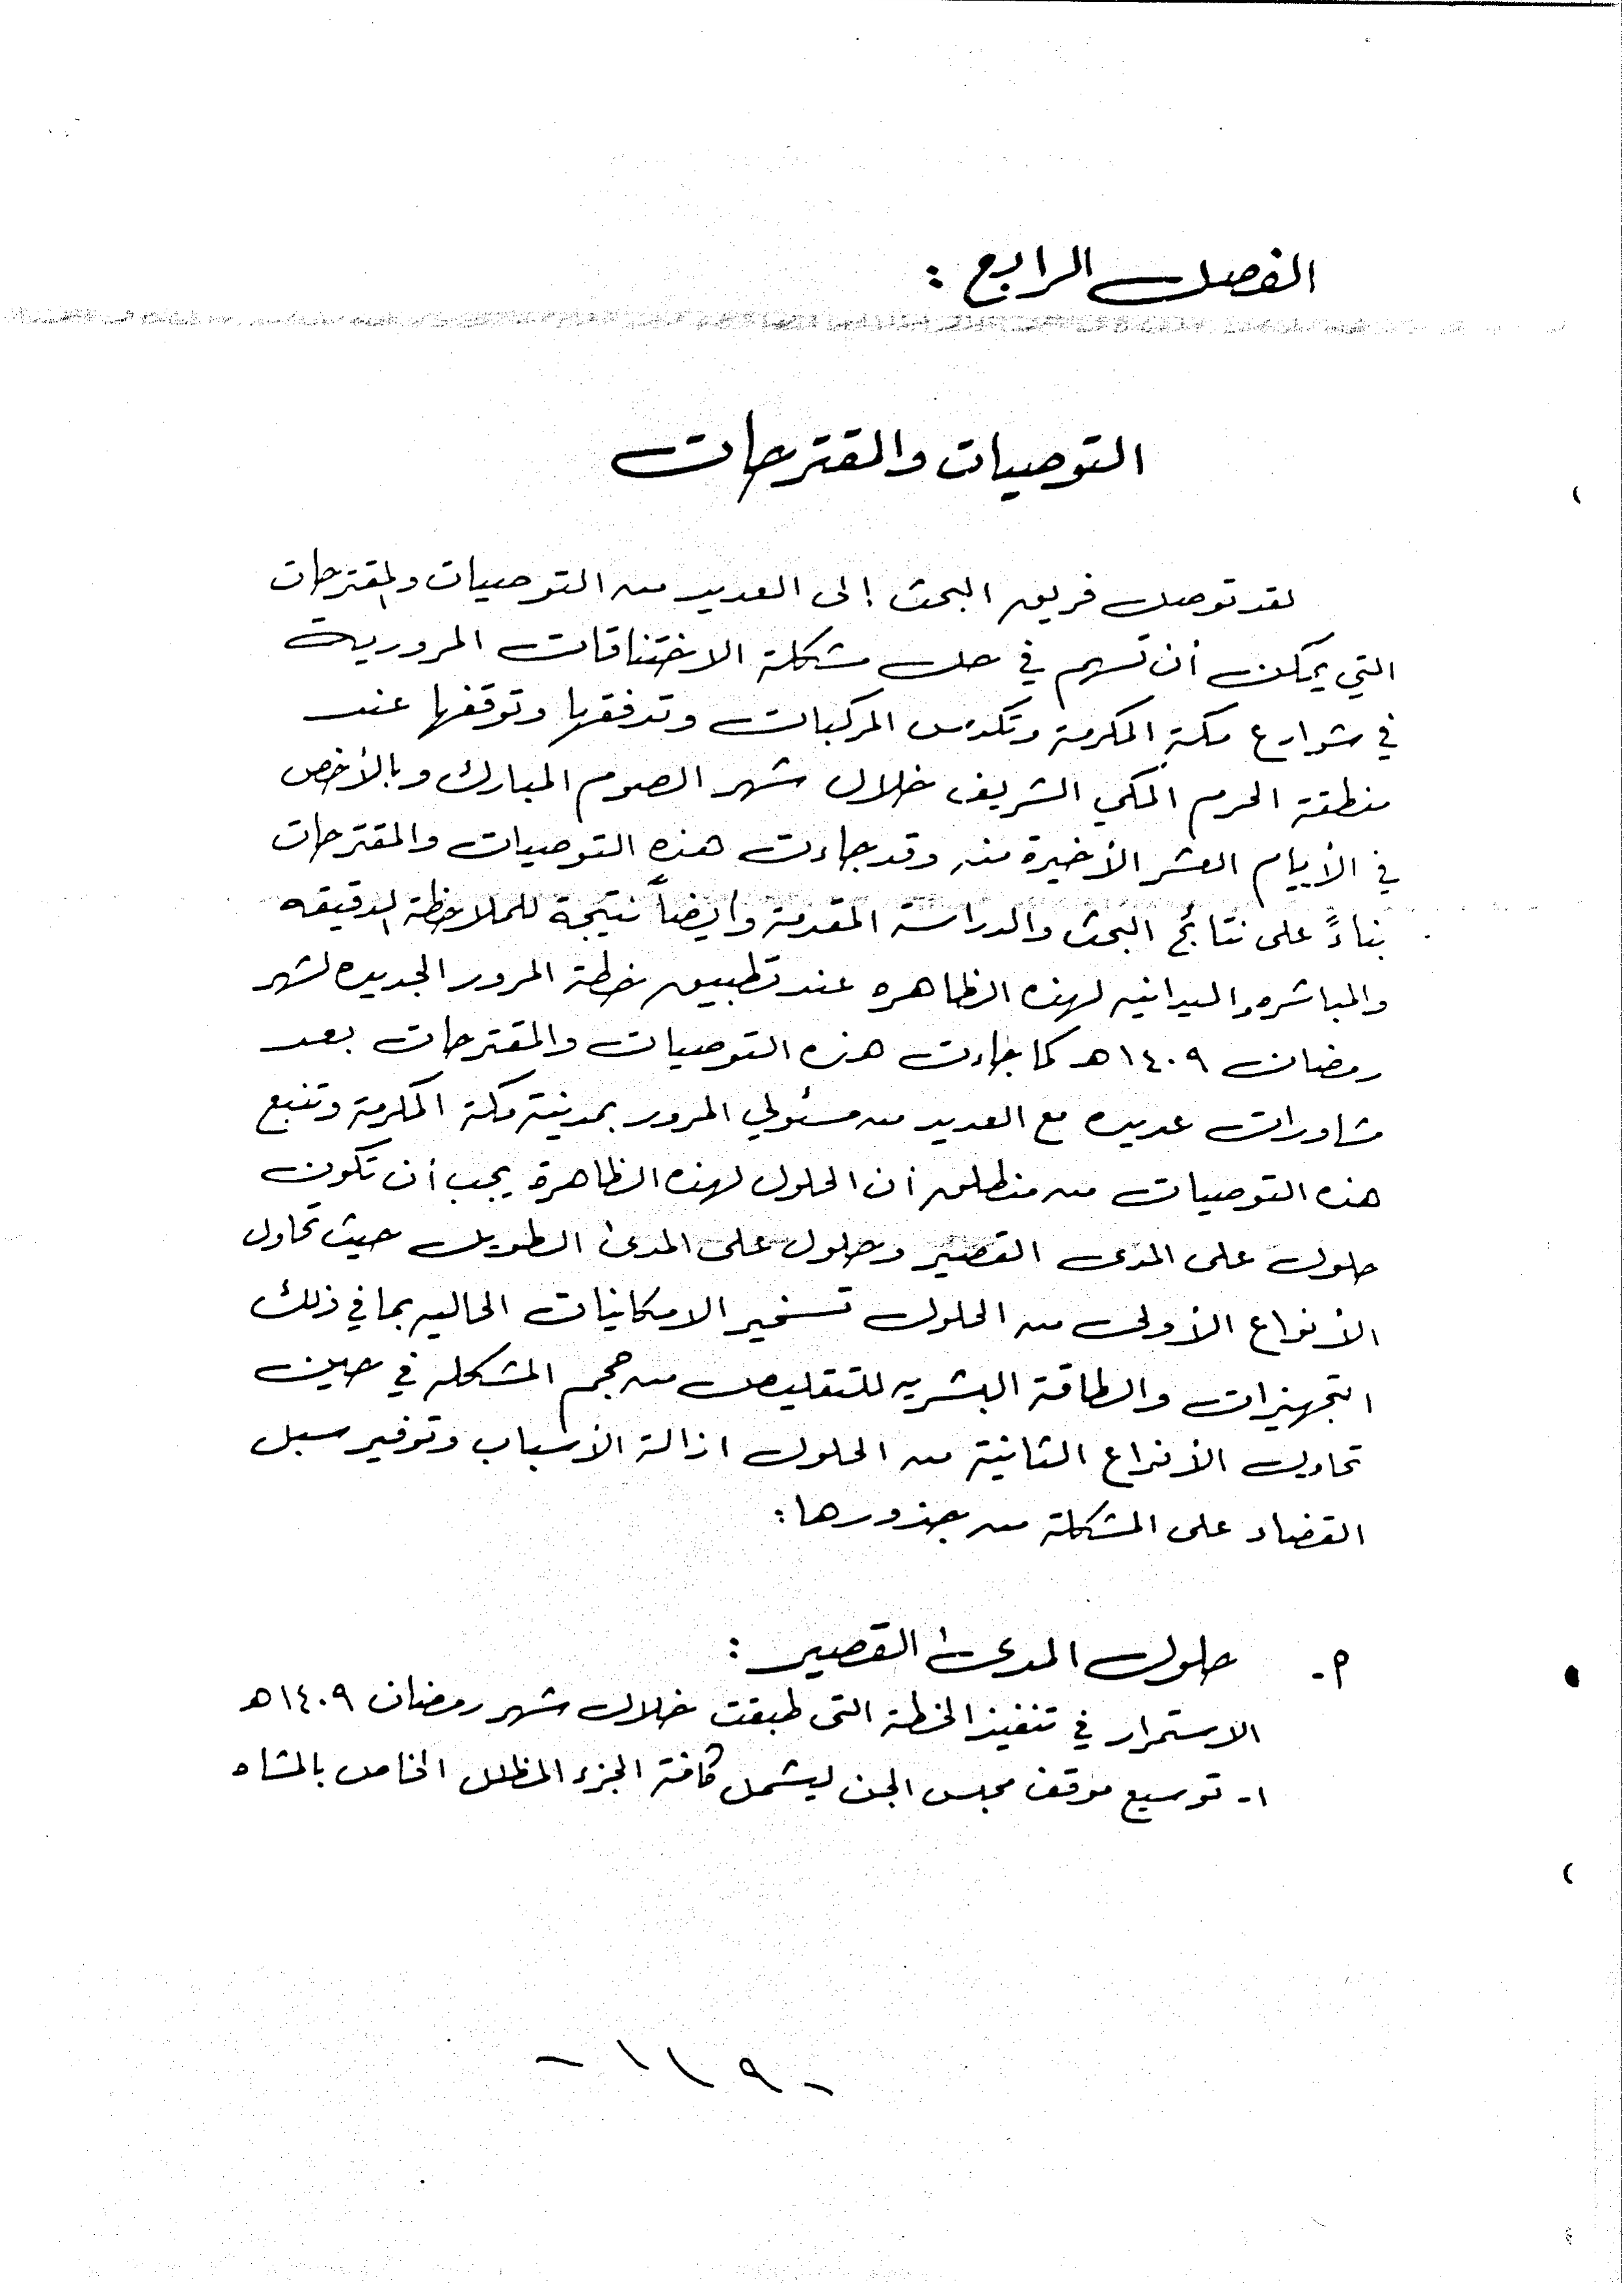 الفصل الرابع :
التوصيات والمقترحات
لقد توصل فريق البحث إلى العديد من التوصيات والمقترحات
التي يمكن أن تسهم في حل مشكلة الاختناقات المرورية
في شوارع مكة المكرمة وتكدس المركبات وتدفقها وتوقفها عند
منطقة الحرم المكي الشريف خلال شهر الصوم المبارك وبالأخص
في الأيام العشر الأخيرة منه وقد جاءت هذه التوصيات والمقترحات
بناءً على نتائج البحث والدراسة المقدمة وأيضاً نتيجة للملاحظة الدقيقه
والمباشره والميدانيه لهذه الظاهره عند تطبيق خطة المرور الجديده لشهر
رمضان ١٤٠٩ هـ كما جاءت هذه التوصيات والمقترحات بعد
مشاورات عديده مع العديد من مسئولي المرور بمدينة مكة المكرمة وتنبع
هذه التوصيات من منطلق أن الحلول لهذه الظاهرة يجب أن تكون
حلول على المدى القصير وحلول على المدى الطويل حيث تحاول
الأنواع الأولى من الحلول تسخير الامكانيات الحاليه بما في ذلك
التجهيزات والطاقة البشريه للتقليص من حجم المشكله في حين
تحاول الأنواع الثانية من الحلول ازالة الأسباب وتوفير سبل
القضاء على المشكلة من جذورها :
أ - حلول المدى القصير :
الاستمرار في تنفيذ الخطة التى طبقت خلال شهر رمضان ١٤٠٩ هـ
١ - توسيع موقف مجلس الجن ليشمل كافة الجزء المظلل الخاص بالمشاه
- ١١٩ -